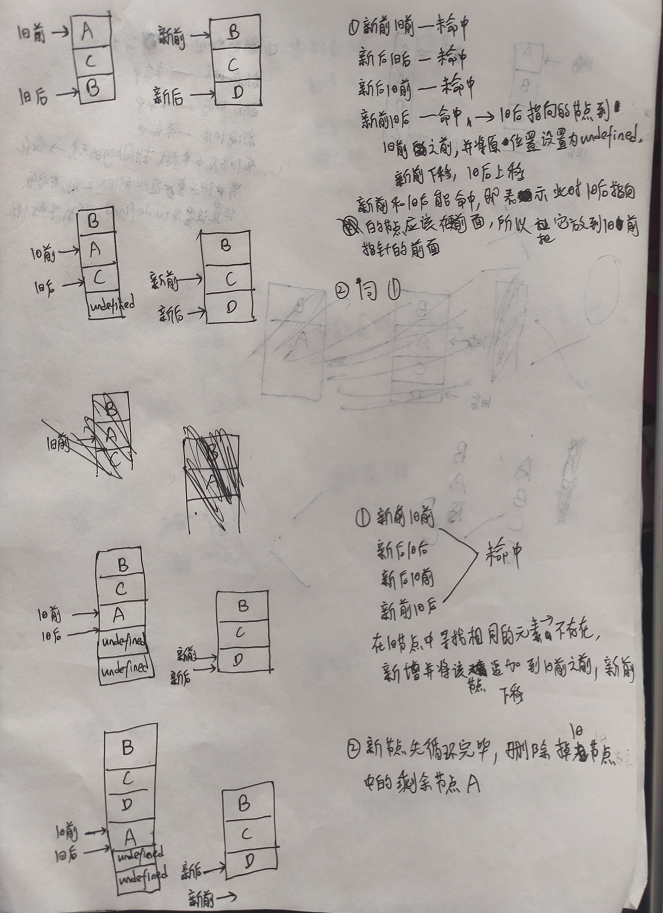 旧前 → A
C
旧后 → B
新前 → B
C
新后 → D
① 新前旧前 — 未命中
新后旧后 — 未命中
新后旧前 — 未命中
新前旧后 — 命中 → 旧后指向的节点到
旧前之前,并将原位置设置为undefined,
新前下移,旧后上移
新前和旧后能命中,即表示此时旧后指向
的节点应该在前面,所以把它放到旧前
指针的前面
B
旧前 → A
旧后 → C
undefined
B
新前 → C
新后 → D
② 同①
B
旧前 → A
C
B
A
B
C
旧前 → A
旧后 →
undefined
undefined
B
C
新前 → D
新后 →
① 新前旧前
新后旧后
新后旧前
新前旧后
未命中
在旧节点中寻找相同的元素 → 不存在,
新增并将该节点追加到旧前之前,新前
下移
B
C
D
旧前 → A
旧后 →
undefined
undefined
B
C
新后 → D
新前 →
② 新节点先循环完毕,删除掉旧节点
中的剩余节点A